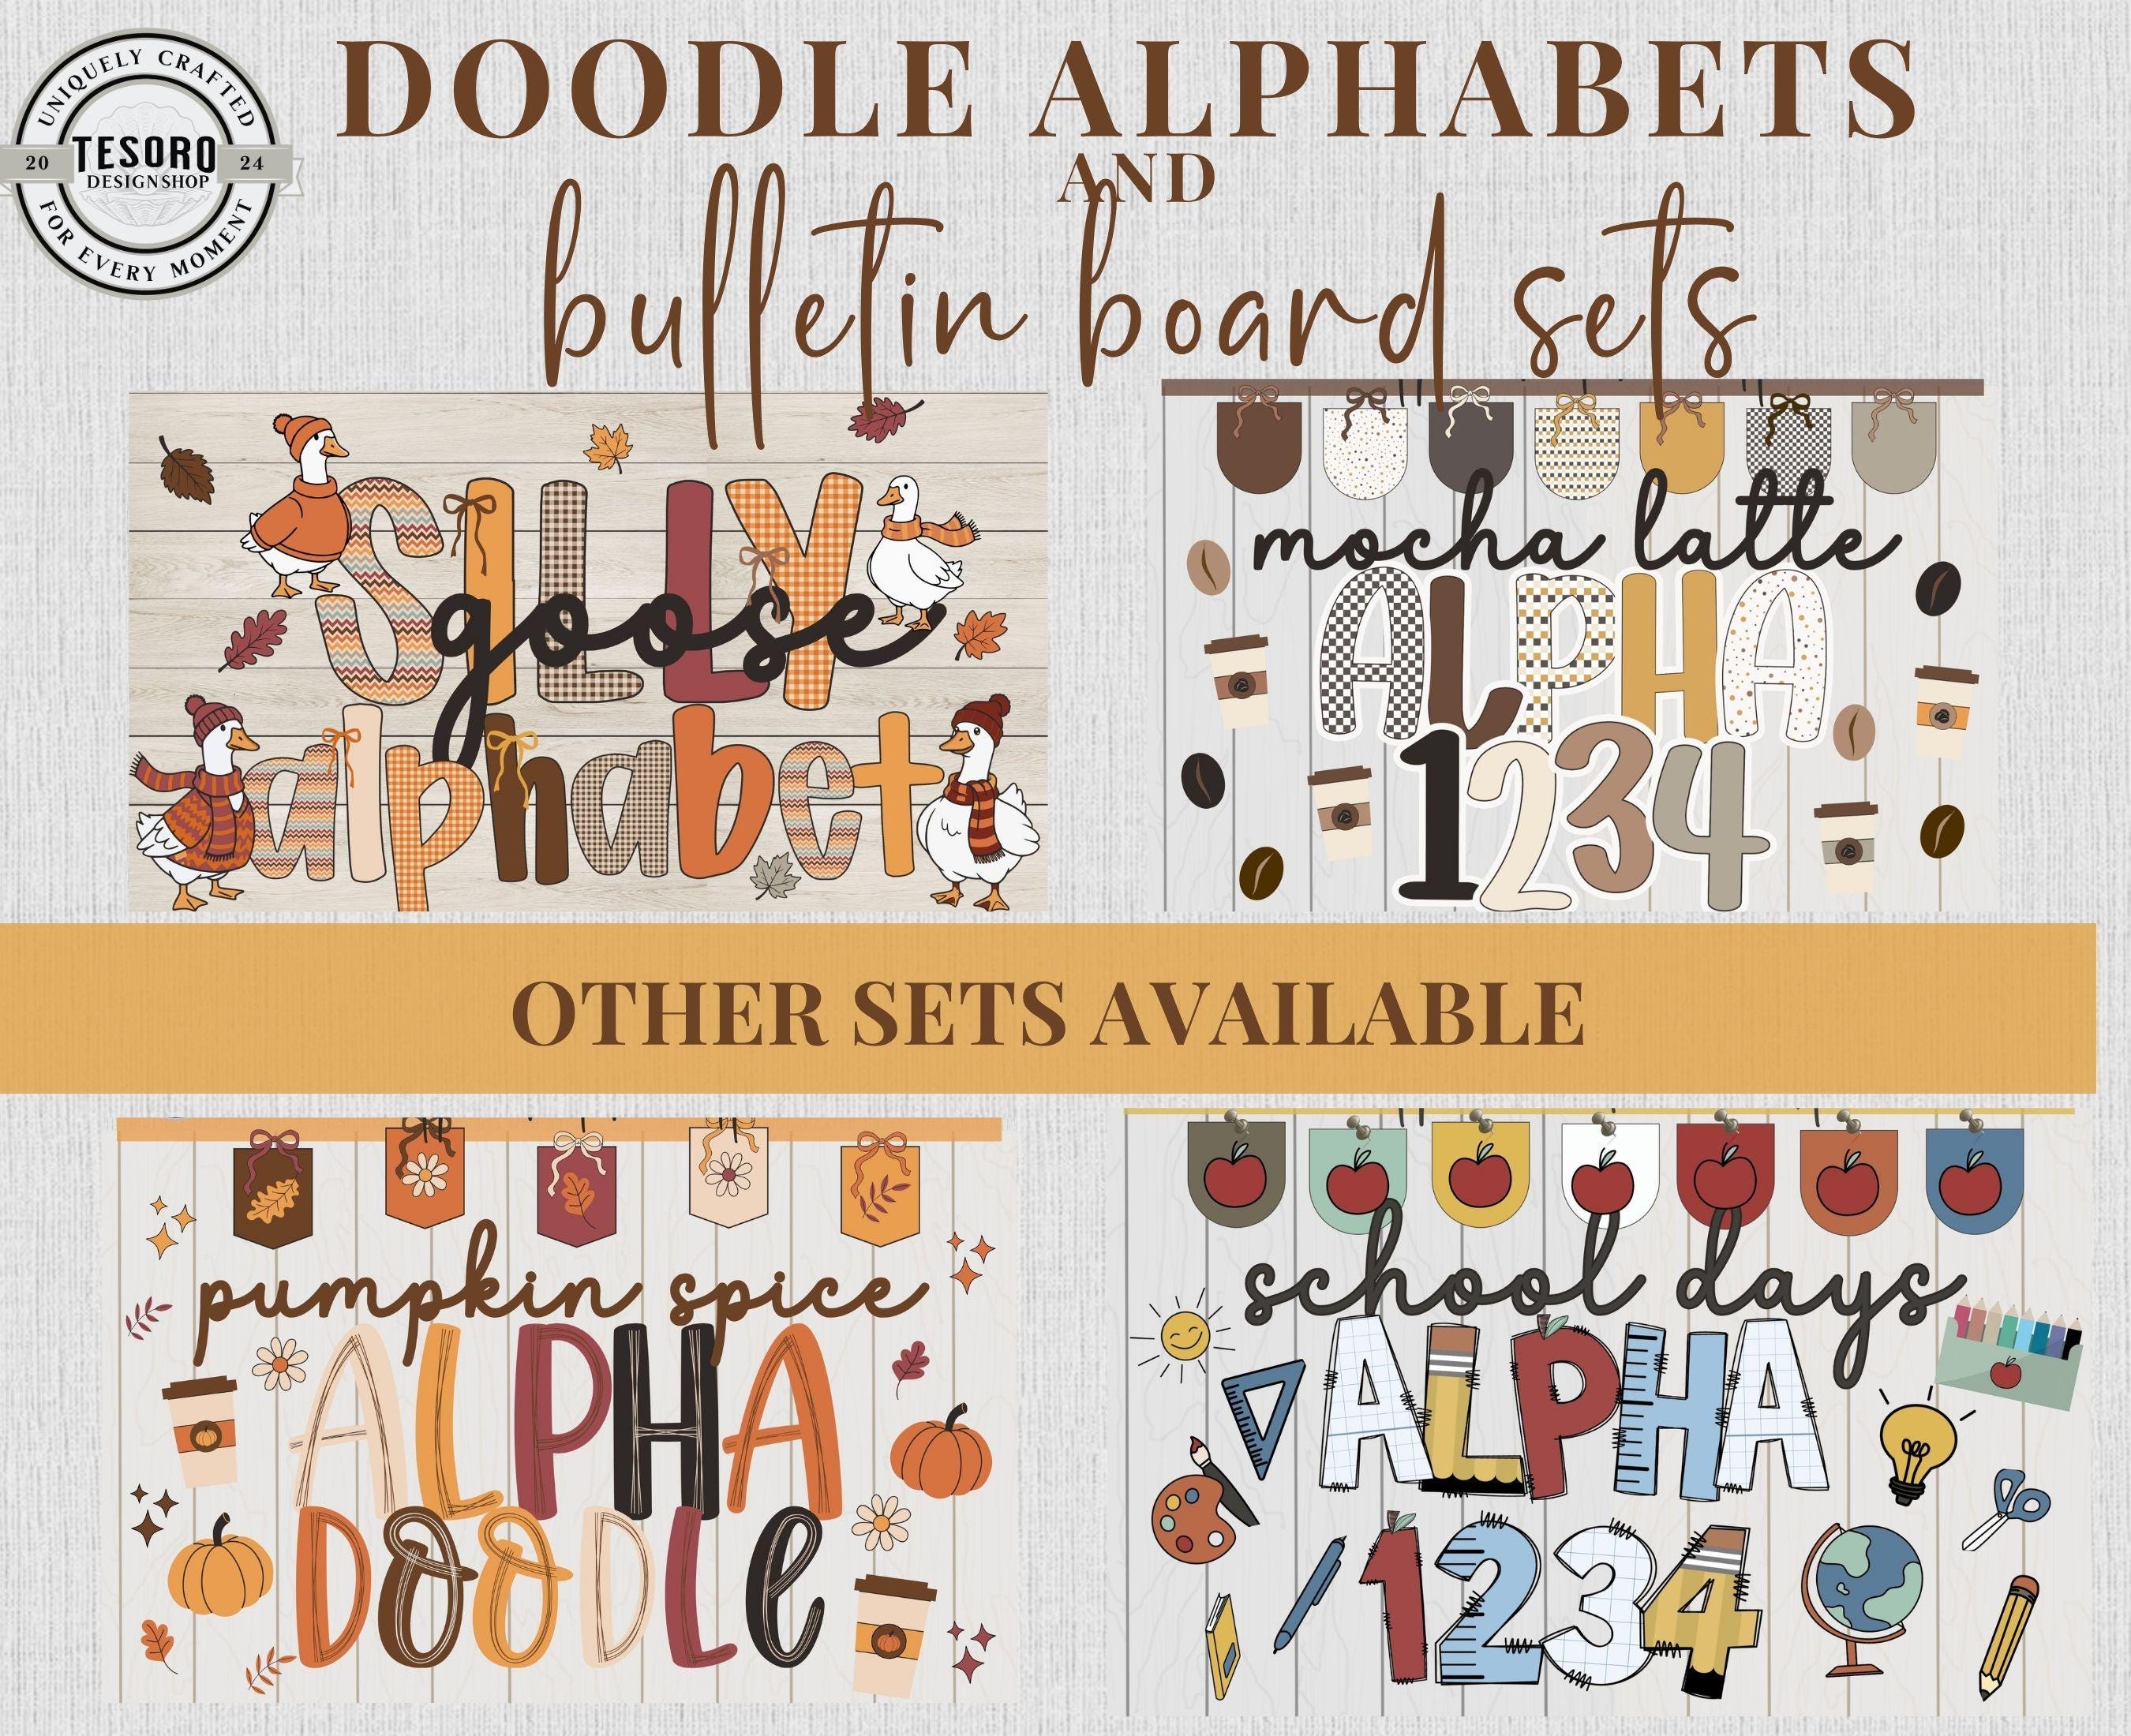 UNIQUELY CRAFTED
20 TESORO 24
DESIGN SHOP
FOR EVERY MOMENT
DOODLE ALPHABETS
AND
bulletin board sets
SILLY
goose
alphabet
mocha latte
ALPHA
1234
OTHER SETS AVAILABLE
pumpkin spice
ALPHA
DOODLe
school days
ALPHA
1234